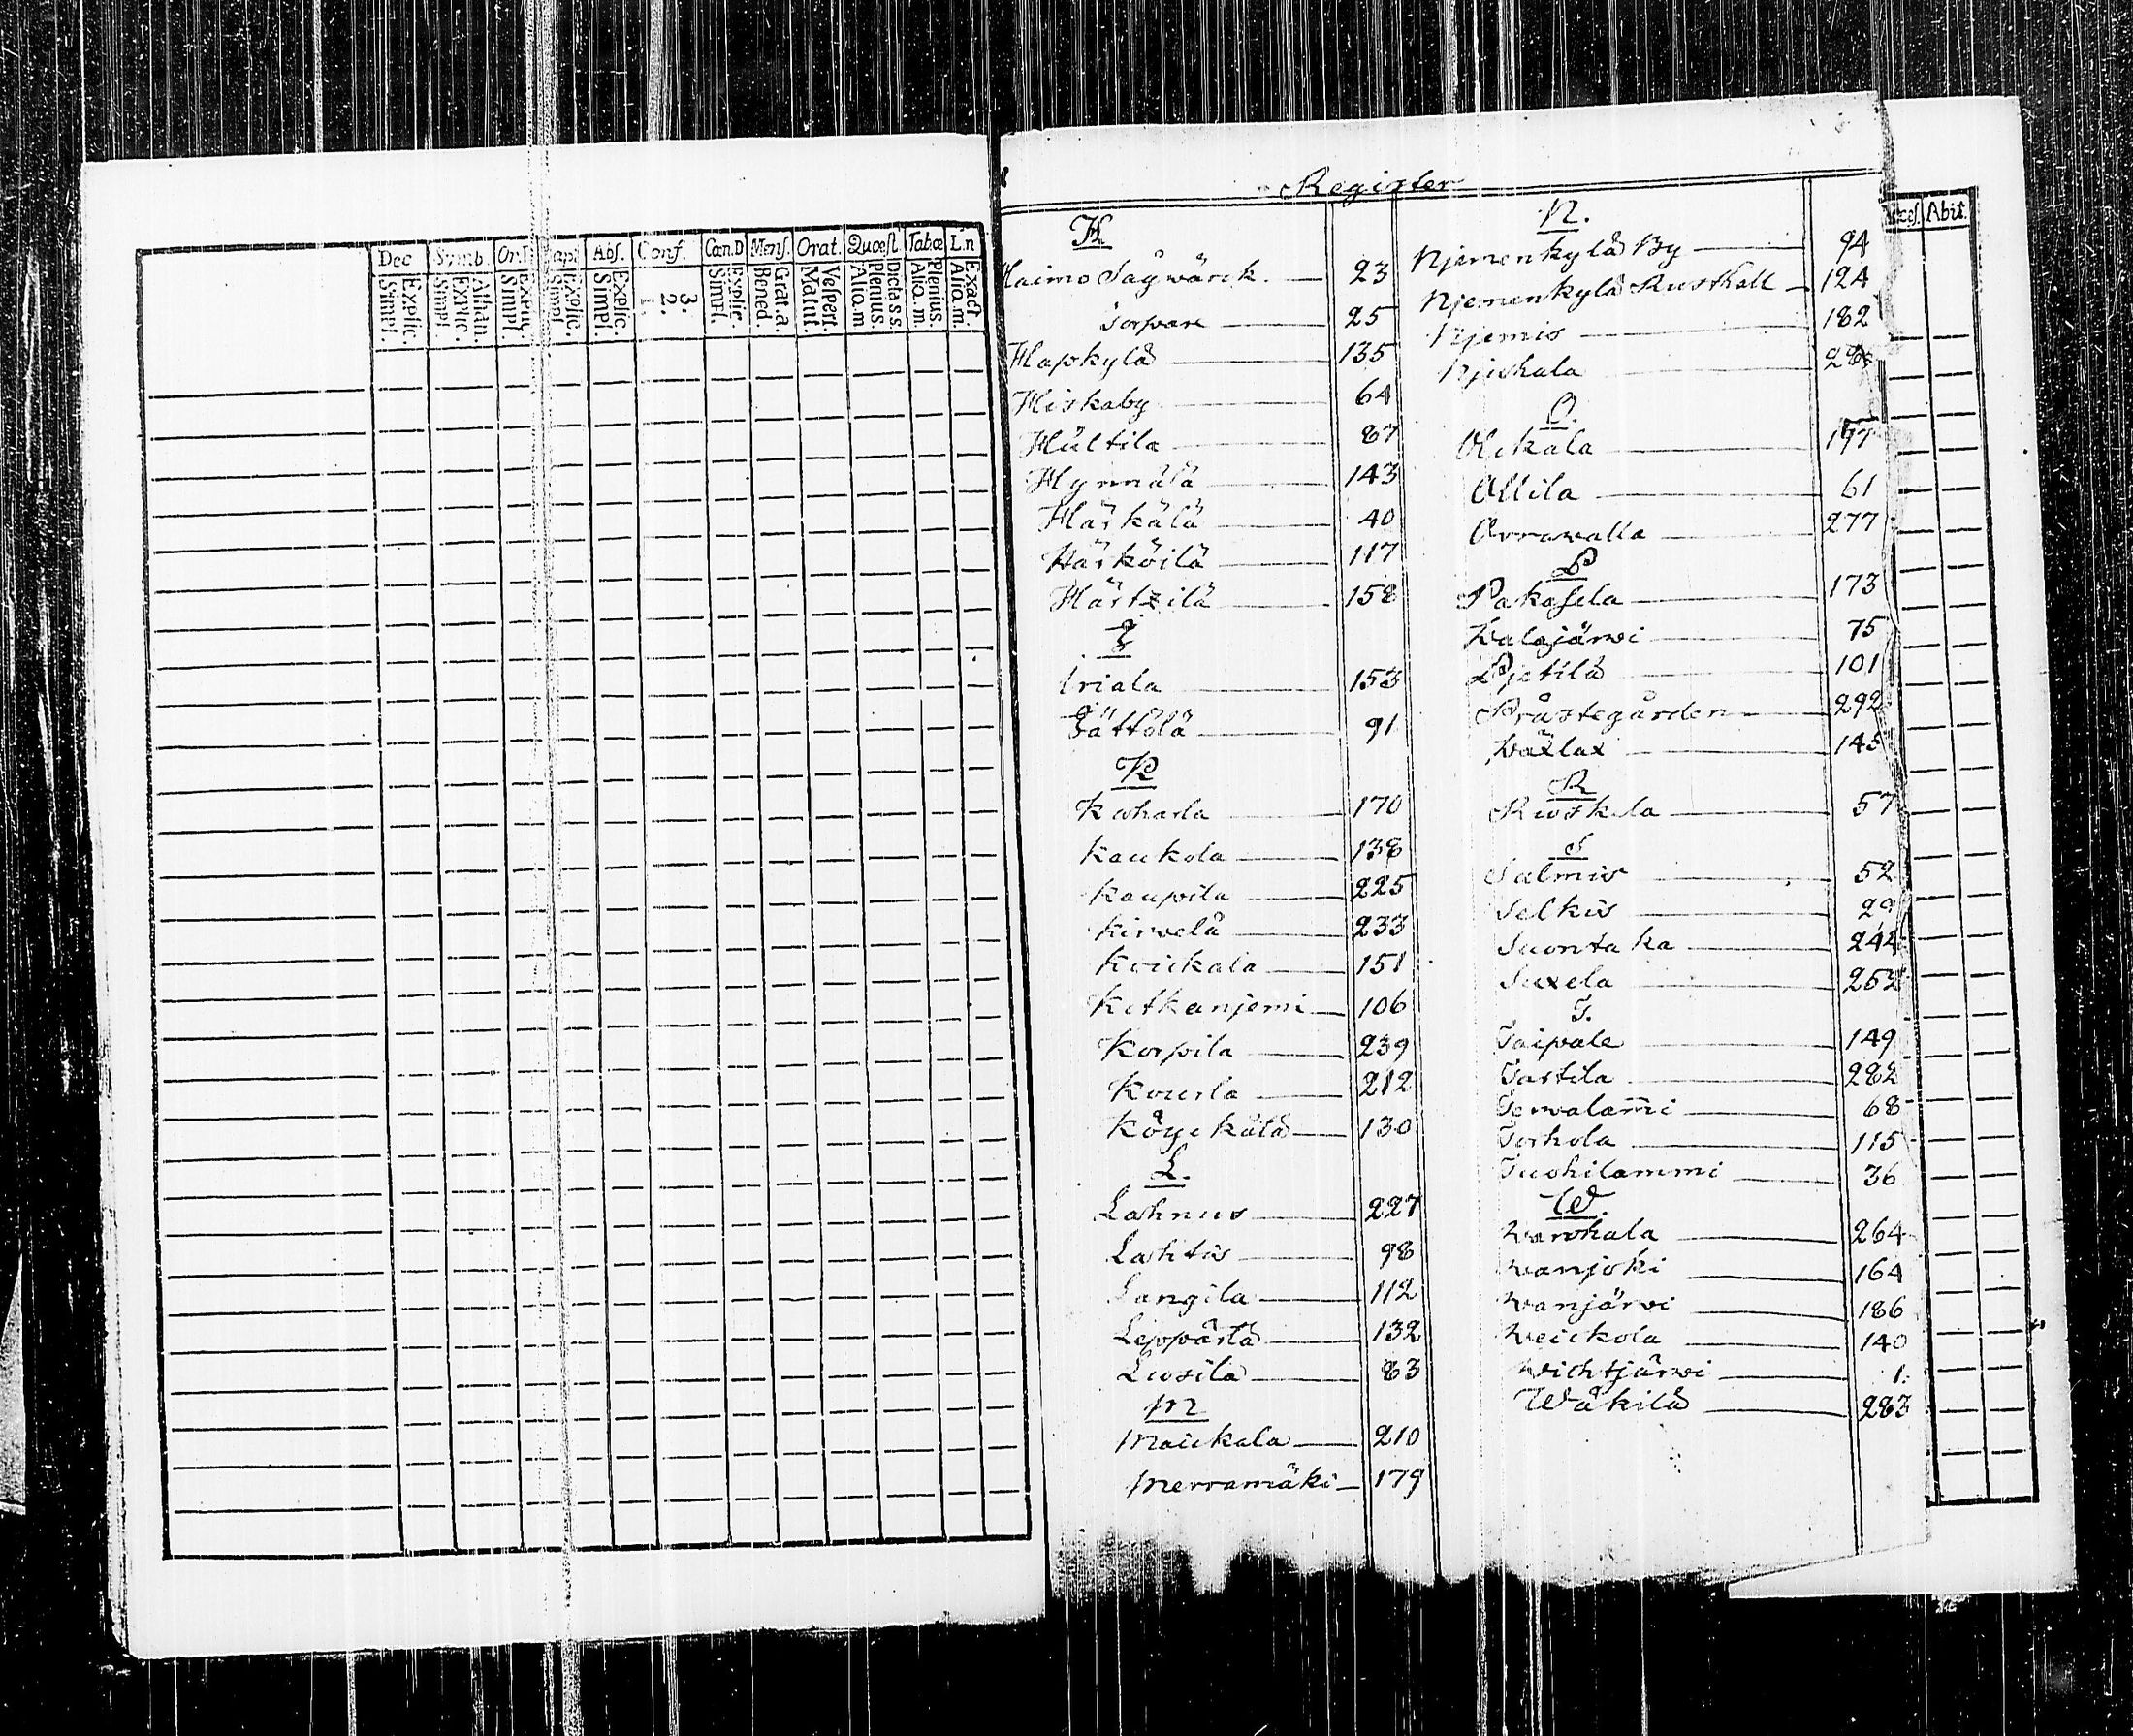 Dec Symb. Or.D Bapt Abs. Conf. Cœn.D Mens. Orat. Quæst Tabœ L.n
Explic. Simpl. Athan. Explic. Simpl. Explic. Simpl. Explic. Simpl. Explic. Simpl. 3. 2. 1. Explic. Simpl. Grat.a. Bened. Vespert. Matut. Dicta s s. Plenius. Aliq.m Plenius. Aliq.m. Exact. Aliq.m.
Register
H
Haimo Sågwärck. 23
Torpare 25
Hapkylä 135
Hiskaby 64
Hültila 87
Hynnälä 143
Härkälä 40
Härköilä 117
Härtzilä 158
I
Iriala 153
Jättölä 91
K
Kaharla 170
Kaukola 138
Kaupila 225
Kirvelä 233
Koickala 151
Kotkanjemi 106
Korpila 239
Kourla 212
Köyckälä 130
L.
Lahnus 227
Lahtis 98
Langila 112
Leppärlä 132
Lusila 83
M
Maickala 210
Merramäki 179
N.
Njemenkylä By 94
Njemenkylä Rusthåll 124
Njemis 182
Njuhala
O.
Olkala 197
Ollila 61
Orrawalla 277
P
Pakasela 173
Palojärwi 75
Pjetilä 101
Prästegården 292
Päxlax 145
R
Ruskela 57
S
Salmis 52
Selkis 29
Suontaka 244
Suxela 252
T.
Taipale 149
Tartila 282
Terwalam̄i 68
Torhola 115
Tuohilammi 36
W.
Wanhala 264
Wanjoki 164
Wanjärwi 186
Weickola 140
Wichtjärwi 1.
Wäkilä 283
Acces. Abit.